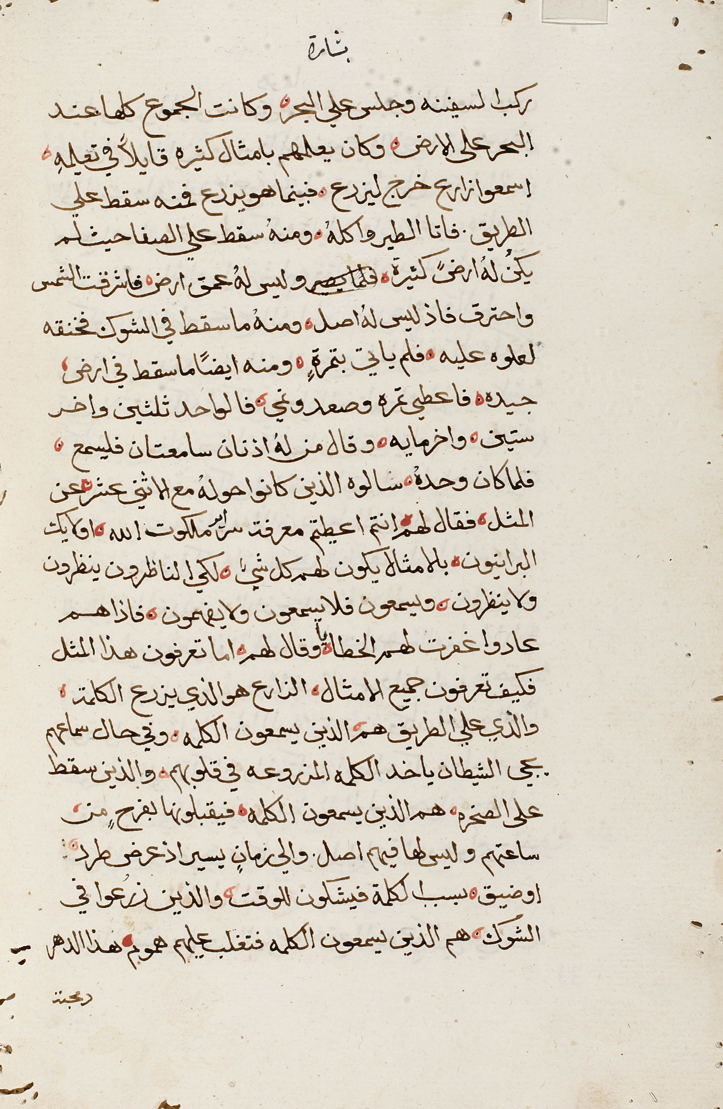 بشارة
ركب السفينه وجلس علي البحر وكانت الجموع كلها عند
البحر علي الارض وكان يعلمهم بامثال كثيره قايلاً في تعليمه
اسمعوا زارع خرج ليزرع فبينما هو يزرع فمنه سقط علي
الطريق فاتا الطير واكلهُ ومنهُ سقط علي الصفا حيث لم
يكنُ لهُ ارضً كثيرة وليس لهُ عمق ارض فاشرقت الشمس
واحترق فاذ ليس لهُ اصل ومنهُ ما سقط في الشوك فخنقه
لعلوه عليه فلم ياتي بثمرةٍ ومنه ايضًا ما سقط في ارض
جيده فاعطي ثمره وصعد ونمي فالواحد ثلثين واخر
ستين واخر مايه وقال من لهُ اذنان سامعتان فليسمع
فلما كان وحدهُ سالوه الذين كانوا حولهُ مع الاثني عشر عن
المثل فقال لهم انتم اعطيتم معرفة سراير ملكوت الله اولايك
البرانيون بالامثال يكون لهم كل شيء لكي الناظرون ينظرون
ولا ينظرون ويسمعون فلا يسمعون ولا يفهمون فاذا هم
عادوا غفرت لهم الخطايا وقال لهم اما تعرفون هذا المثل
فكيف تعرفون جميع الامثال الزارع هو الذي يزرع الكلمة
والذي علي الطريق هم الذين يسمعون الكلمه وفي حال سماعهم
يجي الشيطان ياخد الكلمه المزروعه في قلوبهم والذين سقط
على الصخره هم الذين يسمعون الكلمه فيقبلونها بفرحٍ من
ساعتهم وليس لها فيهم اصل والي زمانٍ يسير اذ عرض طرد
او ضيق بسبب الكلمة فيشكون للوقت والذين زُرعوا في
الشوك هم الذين يسمعون الكلمه فتغلب عليهم هموم هذا الدهر
ومحبة